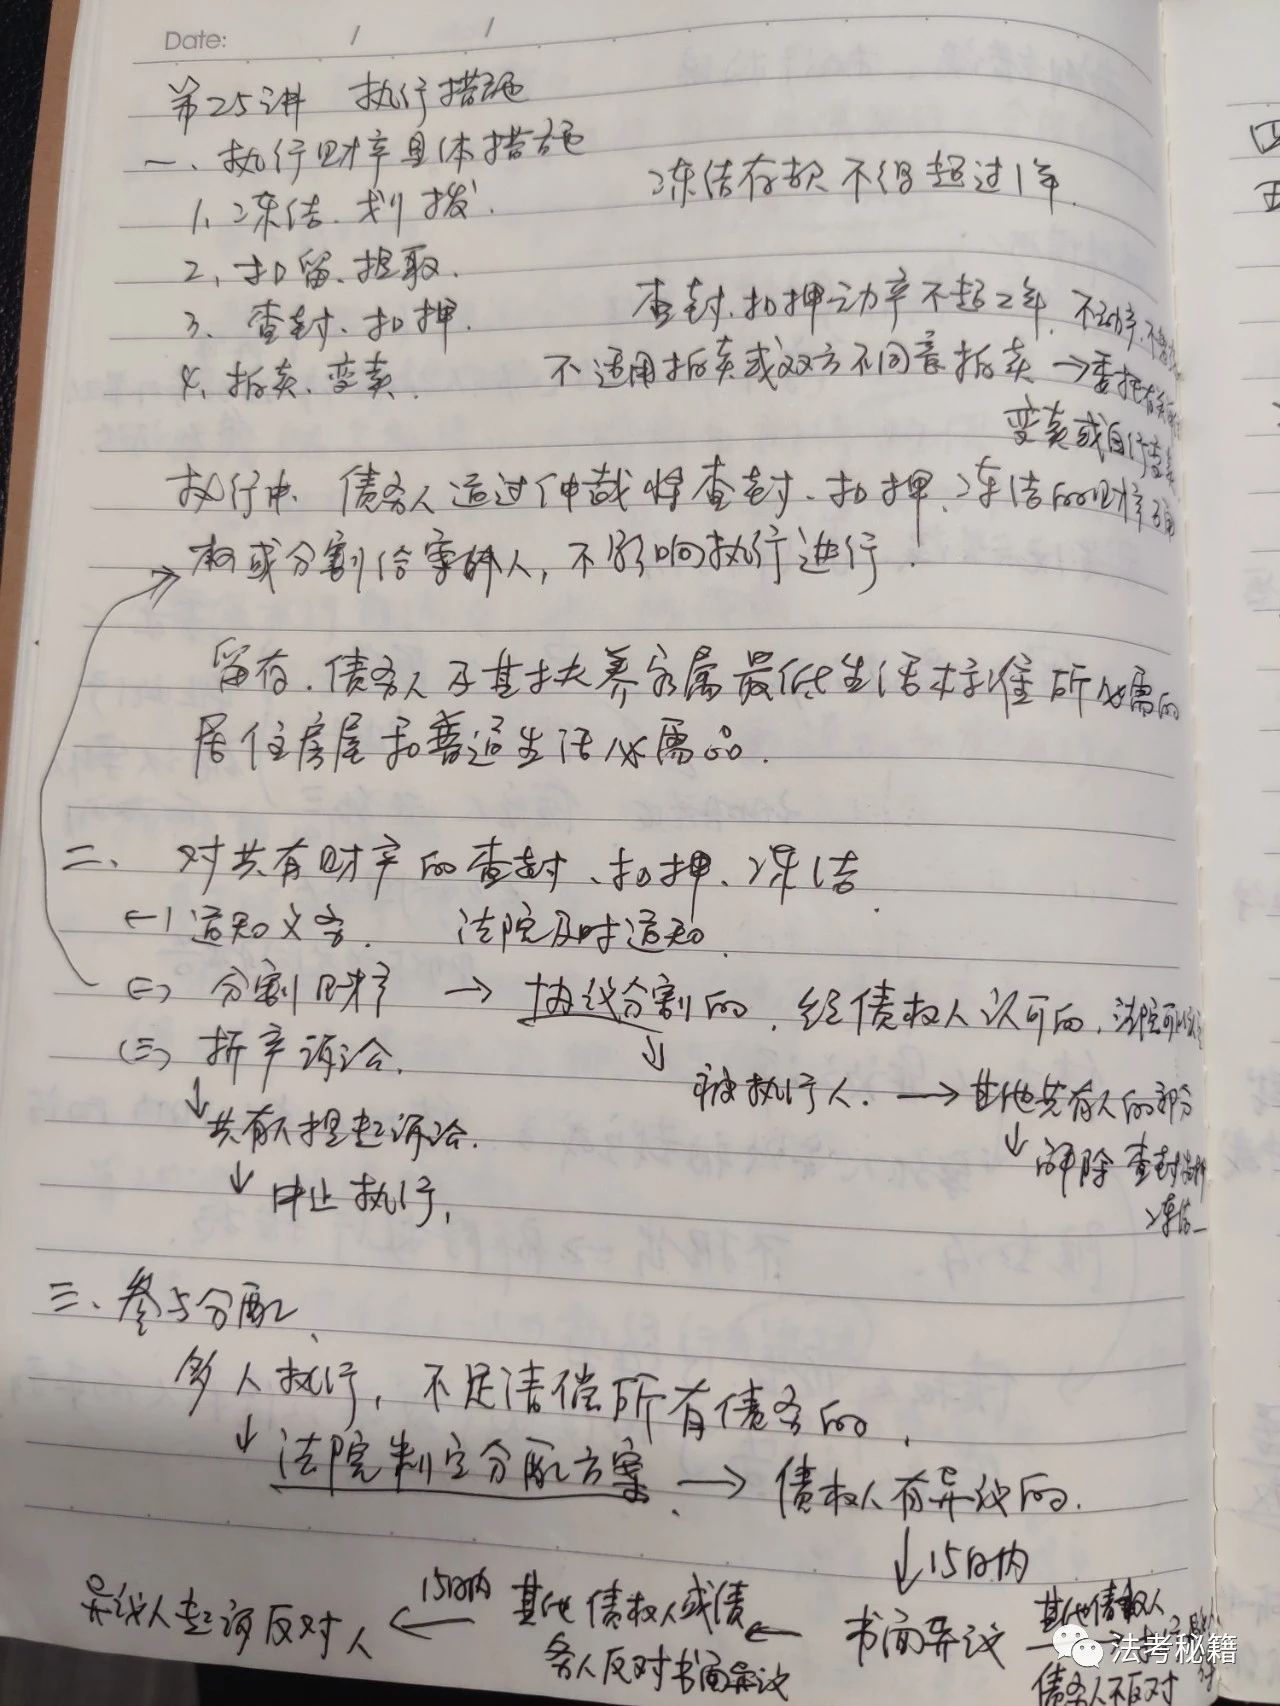 Date: / /
第25讲 执行措施
一、执行财产具体措施
1、冻结、划拨. 冻结存款不得超过1年.
2、扣留、提取.
3、查封、扣押. 查封、扣押动产不超2年,不动产,不
4、拍卖、变卖. 不适用拍卖或双方不同意拍卖→委托有关
变卖或自行变卖
执行中、债务人通过仲裁将查封、扣押、冻结的财产确
权或分割给案外人,不影响执行进行.
留存.债务人及其扶养家属最低生活标准所必需的
居住房屋和普通生活必需品.
二、对共有财产的查封、扣押、冻结.
(一)通知义务. 法院及时通知.
(二)分割财产→协议分割的,经债权人认可的,法院可以
(三)析产诉讼. ↓被执行人.→其他共有人的部分
↓共有人提起诉讼. ↓解除查封扣押
↓中止执行, 冻结
三、参与分配、
多人执行,不足清偿所有债务的,
↓法院制定分配方案.→债权人有异议的.
↓15日内
异议人起诉反对人 ←15日内 其他债权人或债 ← 书面异议 其他债权人
务人反对书面异议 债务人不反对
法考秘籍